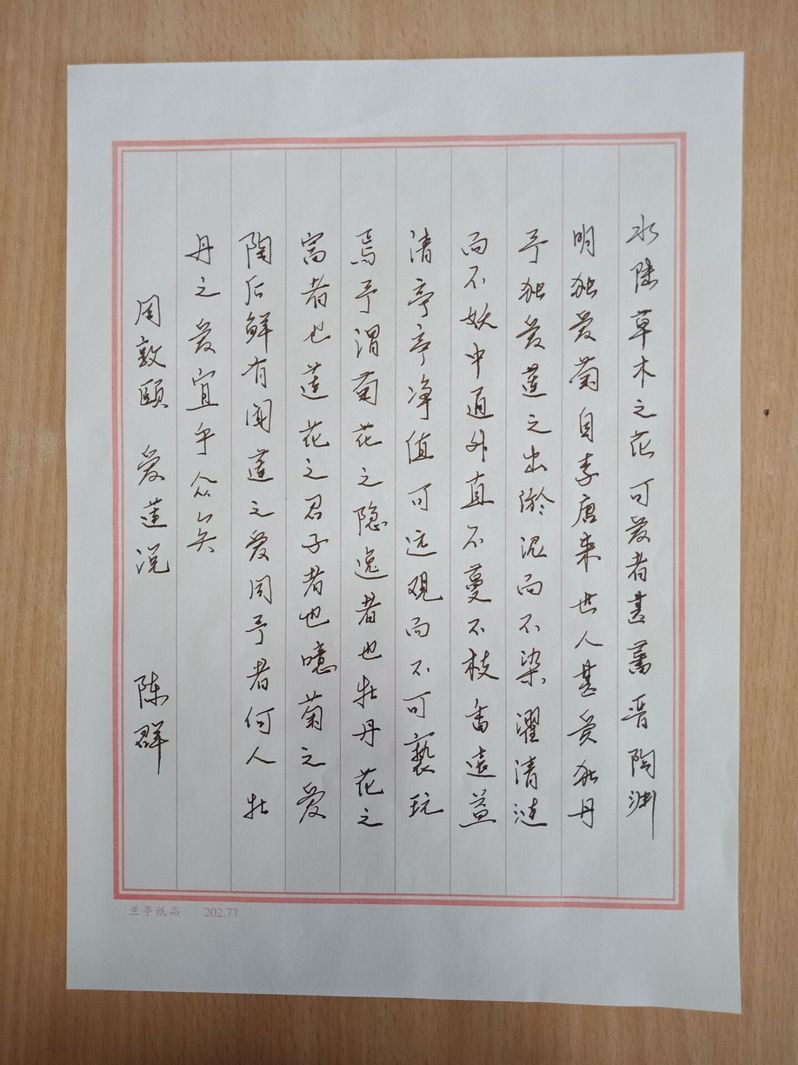 水陆草木之花可爱者甚蕃晋陶渊
明独爱菊自李唐来世人甚爱牡丹
予独爱莲之出淤泥而不染濯清涟
而不妖中通外直不蔓不枝香远益
清亭亭净值可远观而不可亵玩
焉予谓菊花之隐逸者也牡丹花之
富者也莲花之君子者也噫菊之爱
陶后鲜有闻莲之爱同予者何人牡
丹之爱宜乎众矣
周敦颐 爱莲说 陈群
兰亭纸品 202.77